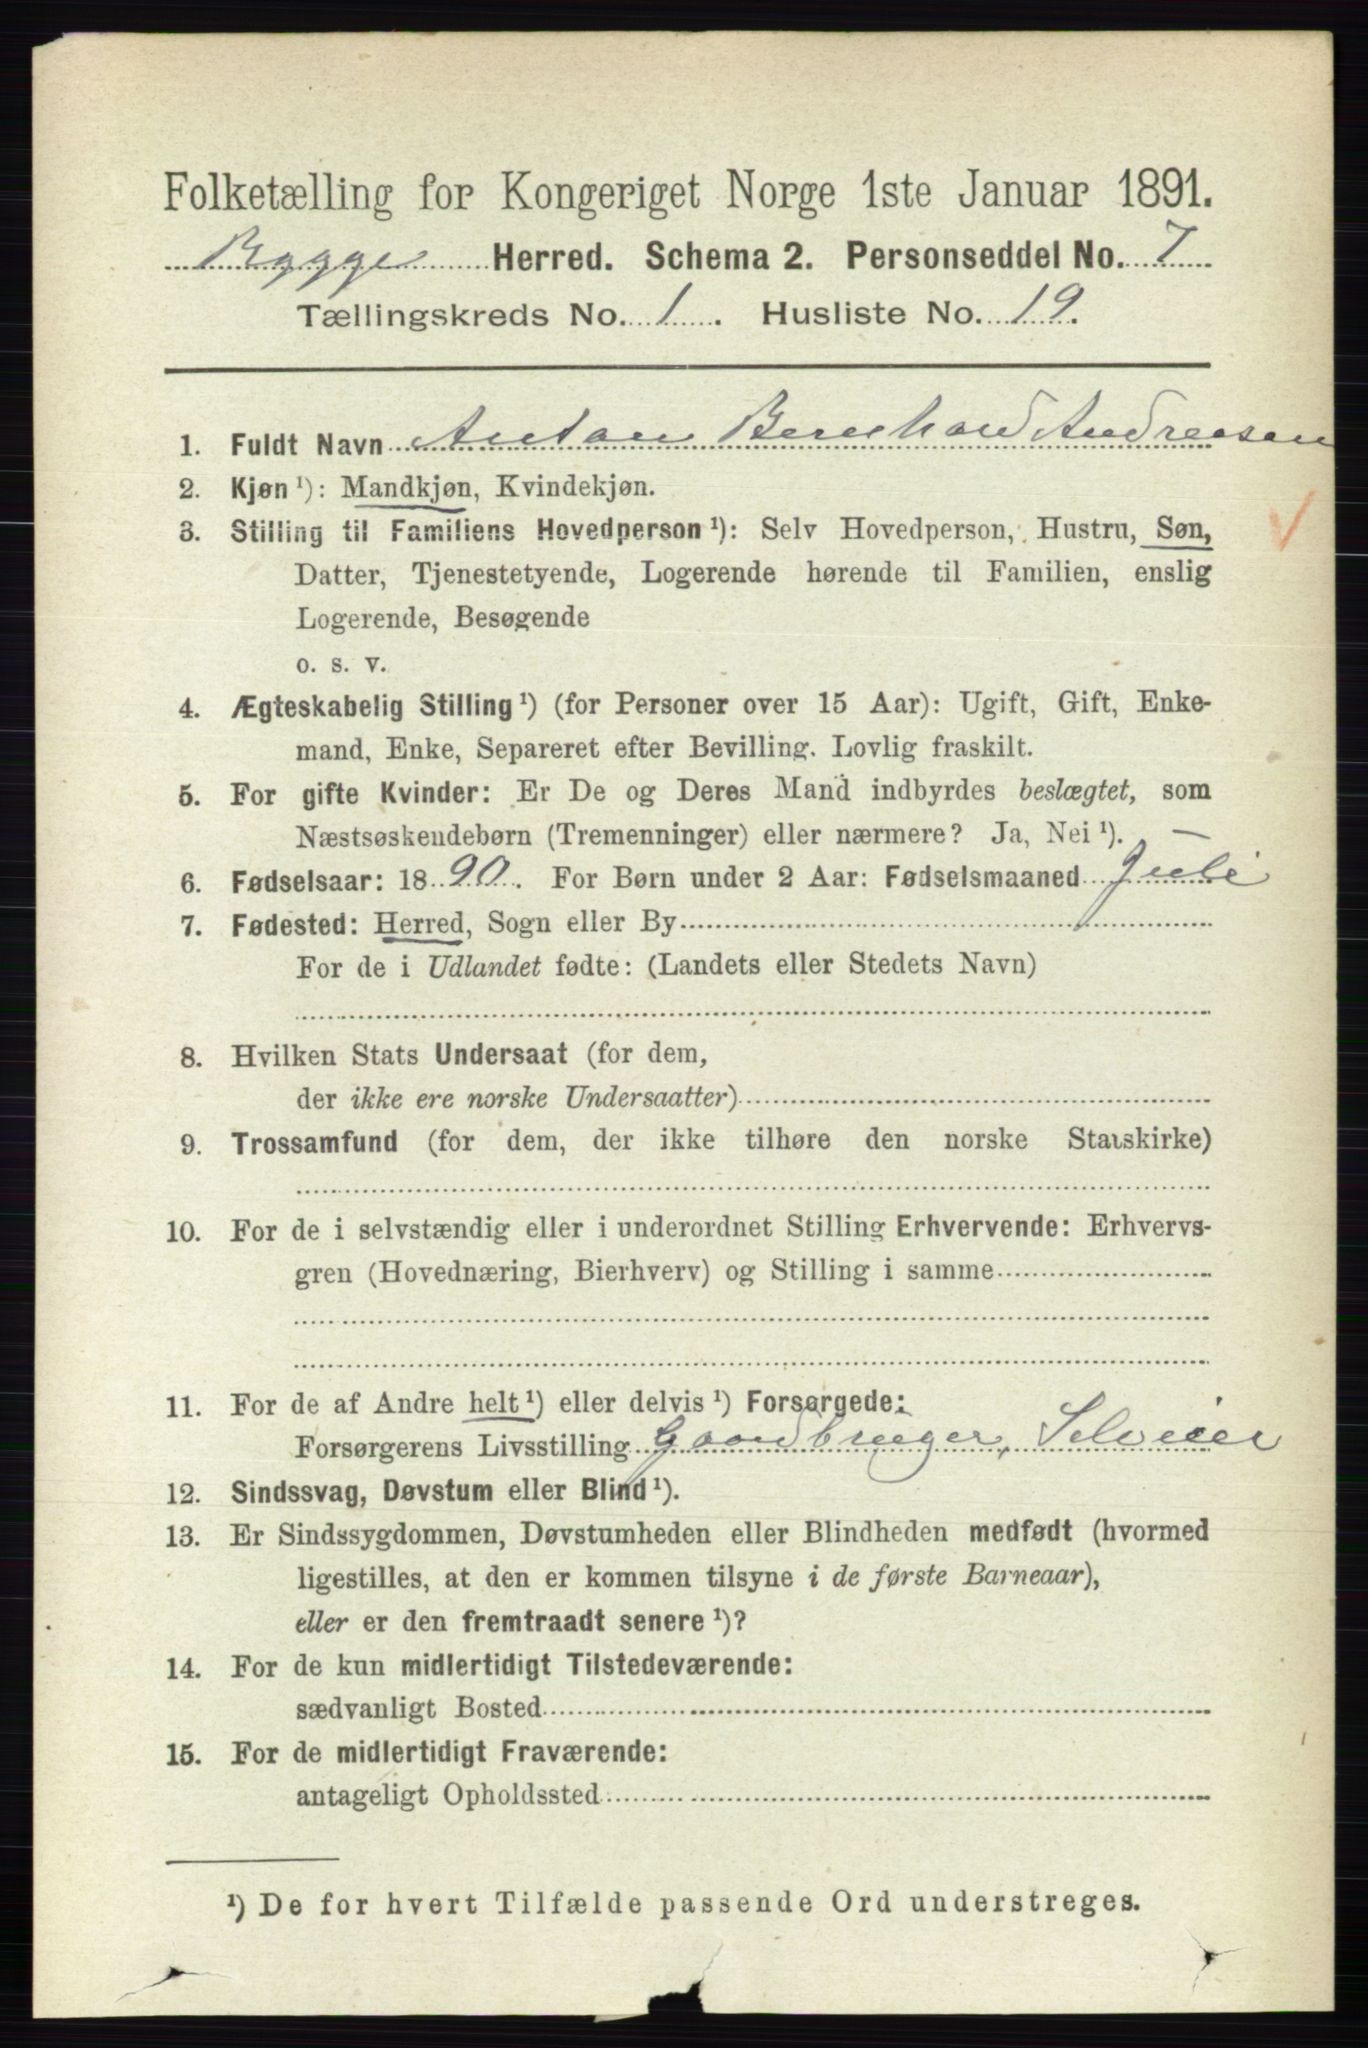 Folketælling for Kongeriget Norge 1ste Januar 1891.
Rygge Herred. Schema 2. Personseddel No. 7
Tællingskreds No. 1. Husliste No. 19.
1. Fuldt Navn Anton Bernhard Andreasen
2. Kjøn ¹): Mandkjøn, Kvindekjøn.
3. Stilling til Familiens Hovedperson ¹): Selv Hovedperson, Hustru, Søn,
Datter, Tjenestetyende, Logerende hørende til Familien, enslig
Logerende, Besøgende
o. s. v.
4. Ægteskabelig Stilling ¹) (for Personer over 15 Aar): Ugift, Gift, Enke-
mand, Enke, Separeret efter Bevilling. Lovlig fraskilt.
5. For gifte Kvinder: Er De og Deres Mand indbyrdes beslægtet, som
Næstsøskendebørn (Tremenninger) eller nærmere? Ja, Nei ¹).
6. Fødselsaar: 1890. For Børn under 2 Aar: Fødselsmaaned Juli
7. Fødested: Herred, Sogn eller By
For de i Udlandet fødte: (Landets eller Stedets Navn)
8. Hvilken Stats Undersaat (for dem,
der ikke ere norske Undersaatter)
9. Trossamfund (for dem, der ikke tilhøre den norske Statskirke)
10. For de i selvstændig eller i underordnet Stilling Erhvervende: Erhvervs-
gren (Hovednæring, Bierhverv) og Stilling i samme
11. For de af Andre helt ¹) eller delvis ¹) Forsørgede:
Forsørgerens Livsstilling Gaardbruger, Selveier
12. Sindssvag, Døvstum eller Blind ¹).
13. Er Sindssygdommen, Døvstumheden eller Blindheden medfødt (hvormed
ligestilles, at den er kommen tilsyne i de første Barneaar),
eller er den fremtraadt senere ¹)?
14. For de kun midlertidigt Tilstedeværende:
sædvanligt Bosted
15. For de midlertidigt Fraværende:
antageligt Opholdssted
¹) De for hvert Tilfælde passende Ord understreges.